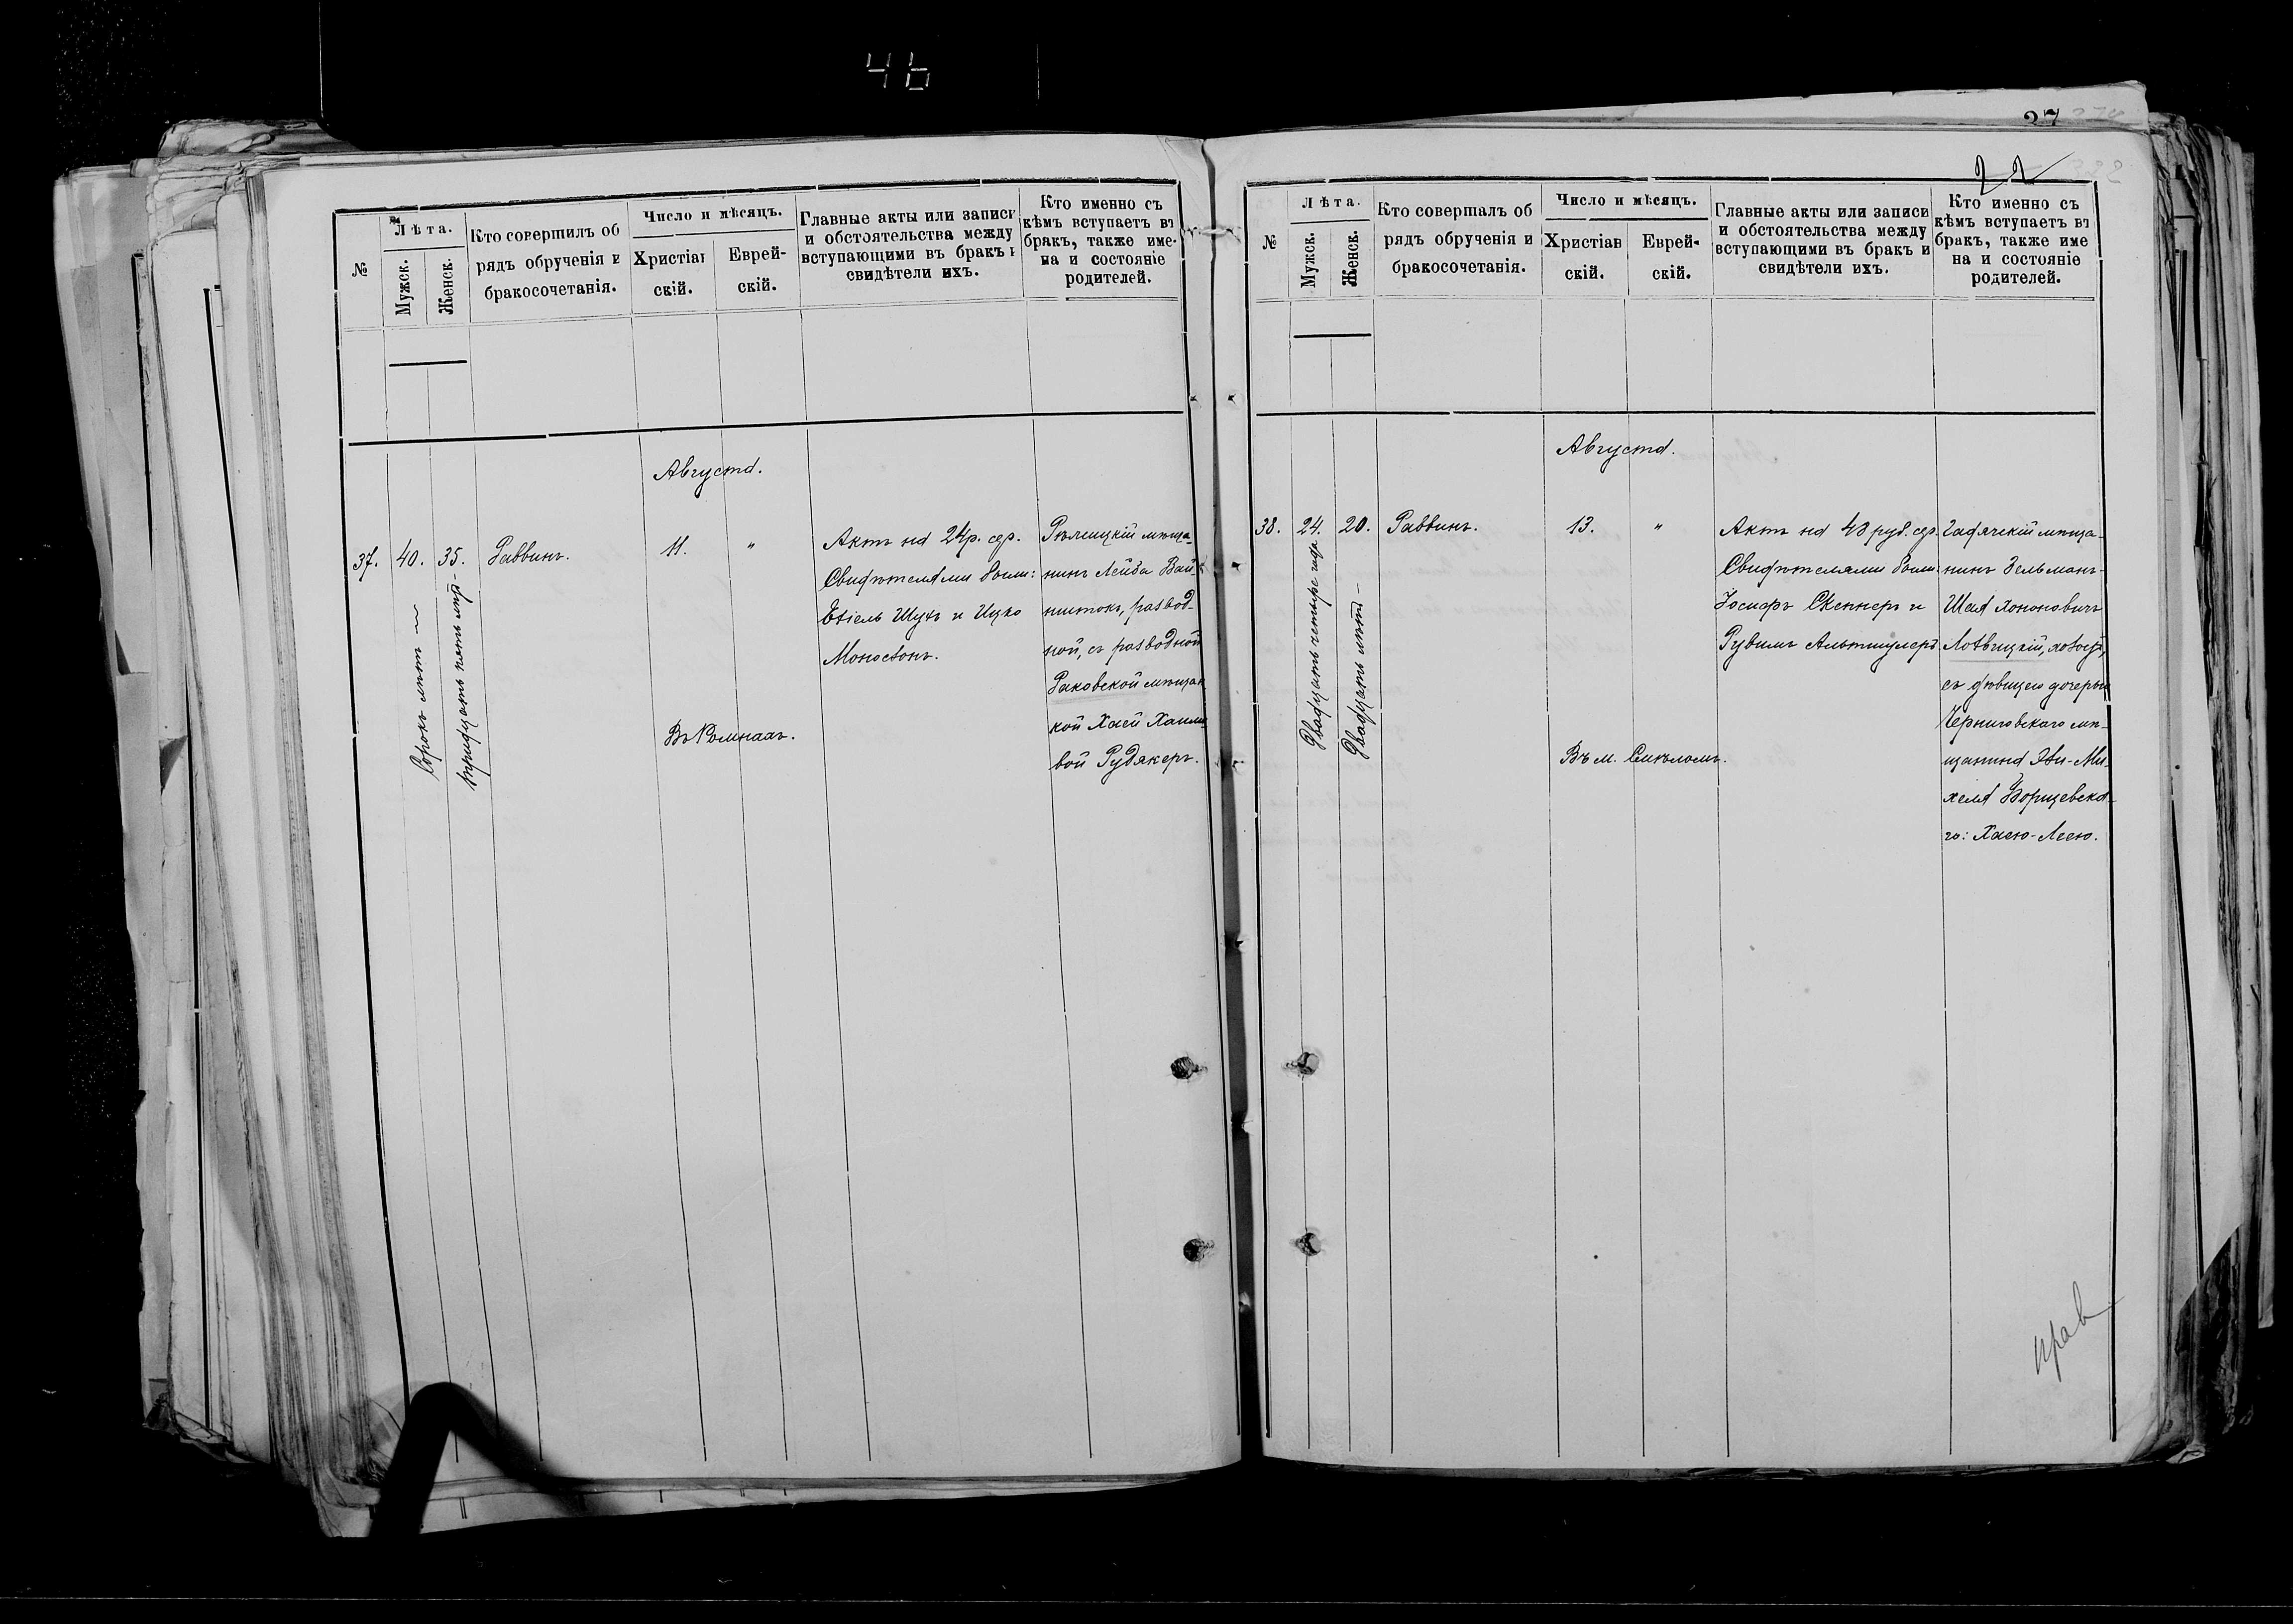 46
№
Лѣта.
Мужск.
Женск.
Кто совершилъ об
рядъ обрученія и
бракосочетанія.
Число и мѣсяцъ.
Христіан
скій.
Еврей-
скій.
Главные акты или записи
и обстоятельства между
вступающими въ бракъ и
свидѣтели ихъ.
Кто именно съ
кѣмъ вступаетъ въ
бракъ, также име-
на и состояніе
родителей.
Августа.
37.
40.
Сорокъ лѣтъ
35.
тридцать пять лѣтъ
Раввинъ.
11.
"
Въ Ромнахъ.
Актъ на 24 р. сер.
Свидѣтелями были:
Ехіель Шухъ и Ицко
Моносзонъ.
Рѣчицкій мѣща-
нинъ Лейба Вай-
нштокъ, развод-
ной, съ разводной
Раковской мѣщан
кой Хаей Хаимо
вой Рудякеръ.
37
22
№
Лѣта.
Мужск.
Женск.
Кто совершалъ об
рядъ обрученія и
бракосочетанія.
Число и мѣсяцъ.
Христіан
скій.
Еврей-
скій.
Главные акты или записи
и обстоятельства между
вступающими въ бракъ и
свидѣтели ихъ.
Кто именно съ
кѣмъ вступаетъ въ
бракъ, также име
на и состояніе
родителей.
Августа.
38.
24.
Двадцать четыре года
20.
Двадцать лѣтъ
Раввинъ.
13.
"
Въ м. Смѣломъ.
Актъ на 48 руб. сер.
Свидѣтелями были:
Іосифъ Скепнеръ и
Рувимъ Альтшулеръ
Гадячскій мѣща-
нинъ Зельманъ-
Шая Хононовичъ
Лохвицкій, холост,
съ дѣвицею дочерью
Черниговскаго мѣ-
щанина Эви-Ми-
хеля Борщевска-
го: Хаею-Леею.